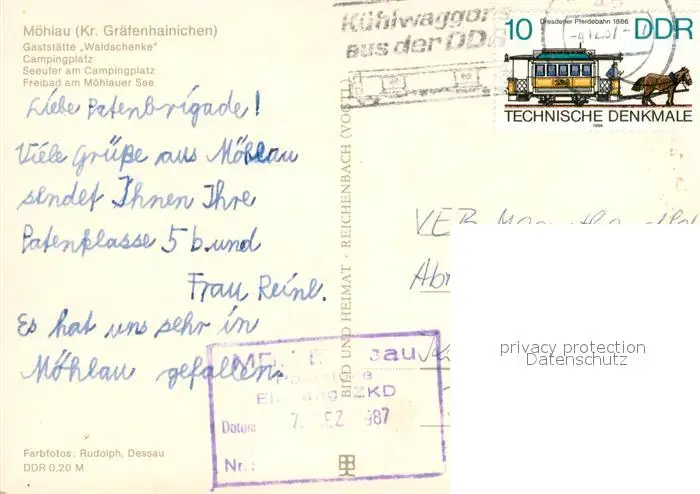 Möhlau (Kr. Gräfenhainichen)
Gaststätte „Waldschenke"
Campingplatz
Seeufer am Campingplatz
Freibad am Möhlauer See
Liebe Patenbrigade!
Viele Grüße aus Möhlau
sendet Ihnen Ihre
Patenklasse 5b und
Frau Reinl.
Es hat uns sehr in
Möhlau gefallen.
Farbfotos: Rudolph, Dessau
DDR 0,20 M
BILD UND HEIMAT · REICHENBACH (VOGTL)
Kühlwaggons
aus der DDR
Dresdener Pferdebahn 1886
10 DDR
TECHNISCHE DENKMALE
1986
VEB
ZKD
Datum: 7. DEZ. 1987
Nr.:
privacy protection
Datenschutz